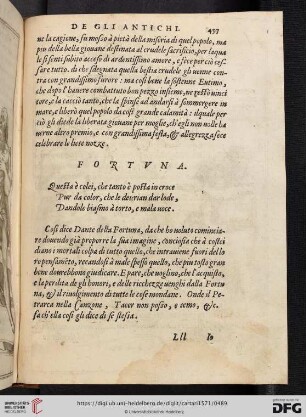 DE GLI ANTICHI. 457
ne la cagione, fu mosso à pietà della miseria di quel popolo, ma
più della bella giovane destinata al crudele sacrificio, per la qua
le si sentì subito acceso di ardentissimo amore, e sì ve per cio ces
sare tutto. di che sdegnata quella bestia crudele gli venne con-
tra con grandissimo furore: ma così bene la sostenne Eutimo,
che dopo l'havere combattuto bon pezzo insieme, ne restò vinci
tore, e la cacciò tanto, che la spinse ad andarsi à sommergere in
mare, e liberò quel popolo da così grande calamità: il quale per
ciò gli diede la liberata giovane per moglie, ch'egli non volle ha
verne altro premio, e con grandissima festa, & allegrezza fece
celebrare le liete nozze.
FORTVNA.
Questa è colei, che tanto è posta in croce
Pur da color, che le devrian dar lode,
Dandole biasmo à torto, e mala voce.
Così disse Dante della Fortuna, da che ho voluto comincia-
re dovendo già preporre la sua imagine, conciosia che à costei
diano i mortali colpa di tutto quello, che intraviene fuori dello
ro pensamento, recandosi à male spesso quello, che piu tosto gran
bene dovrebbono giudicare. E pare, che voglino, che l'acquisto,
e la perdita de gli honori, e delle ricchezze venghi dalla Fortu
na, & il rivolgimento di tutte le cose mondane. Onde il Pe-
trarca nella Canzone, Tacer non posso, e temo, &c.
fà ch'ella così gli dice di se stessa.
Lll Io
UNIVERSITÄTS-
BIBLIOTHEK
HEIDELBERG
https://digi.ub.uni-heidelberg.de/diglit/cartari1571/0489
© Universitätsbibliothek Heidelberg
gefördert durch die
DFG